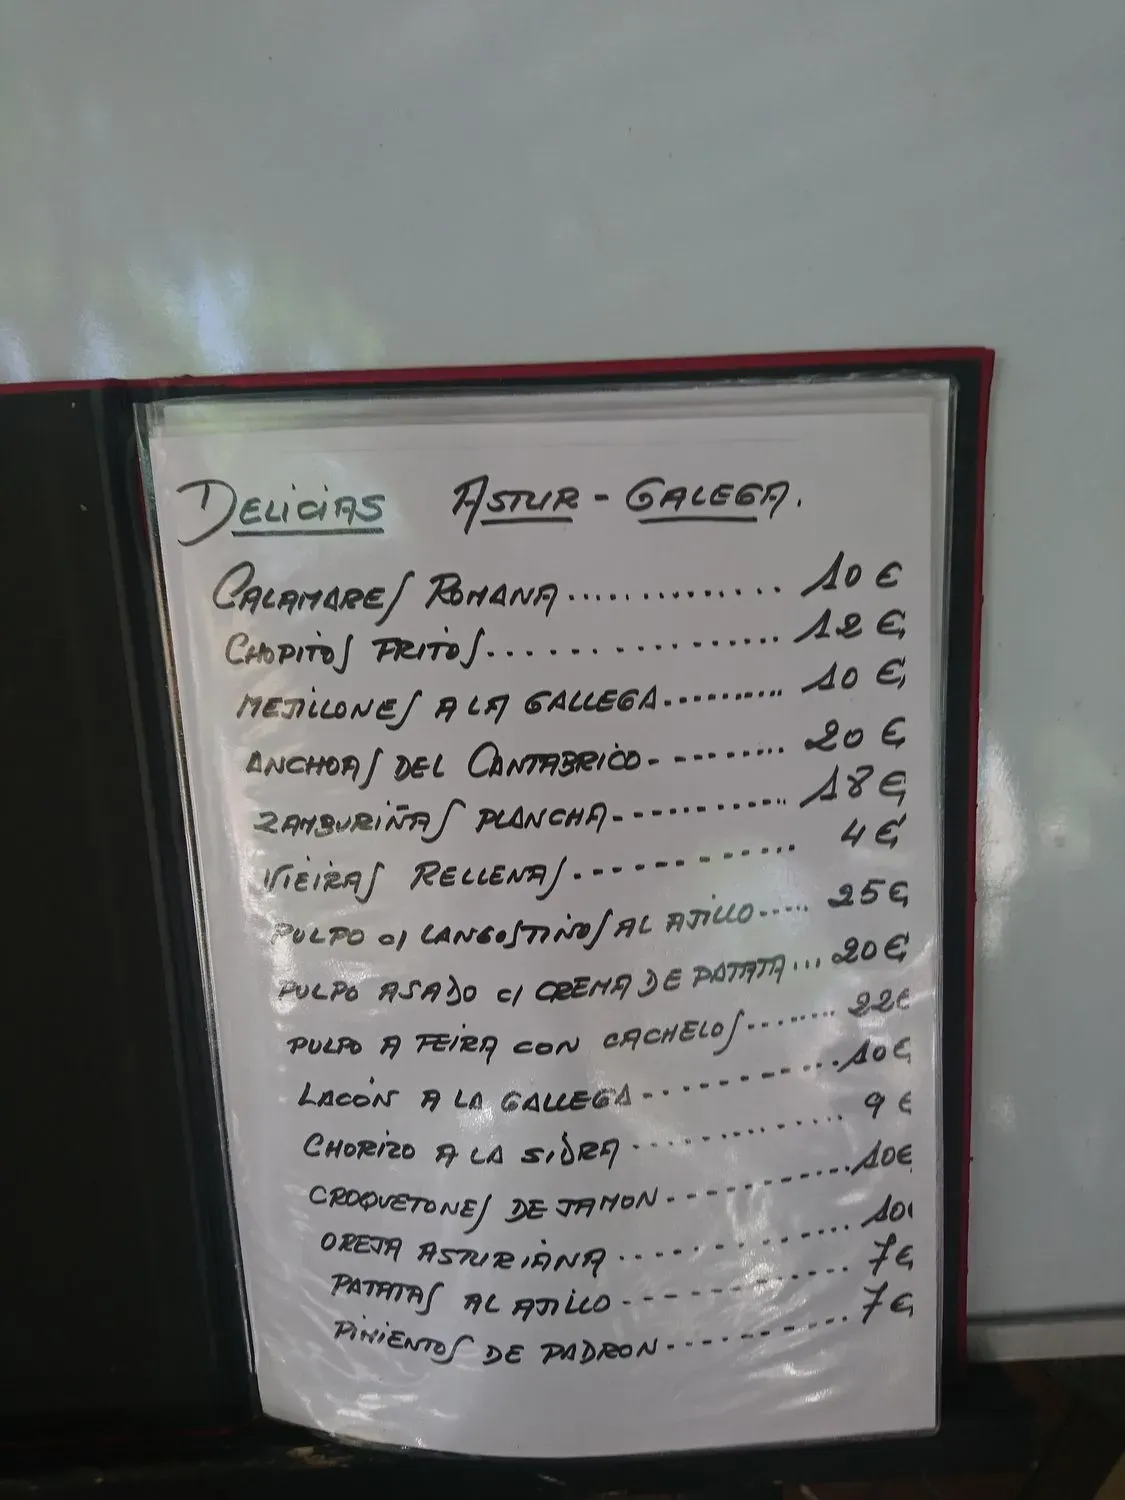 DELICIAS ASTUR - GALEGA.
CALAMARES ROMANA.............. 10 €
CHOPITOS FRITOS............... 12 €
MEJILLONES A LA GALLEGA.......... 10 €
ANCHOAS DEL CANTABRICO.......... 20 €
ZAMBURIÑAS PLANCHA............ 18 €
VIEIRAS RELLENAS............. 4 €
PULPO c/ LANGOSTINOS AL AJILLO..... 25 €
PULPO ASADO c/ CREMA DE PATATA... 20 €
PULPO A FEIRA CON CACHELOS........ 22 €
LACÓN A LA GALLEGA............ 10 €
CHORIZO A LA SIDRA............. 9 €
CROQUETONES DE JAMON........... 10 €
OREJA ASTURIANA............. 10
PATATAS AL AJILLO............. 7 €
PIMIENTOS DE PADRON........... 7 €